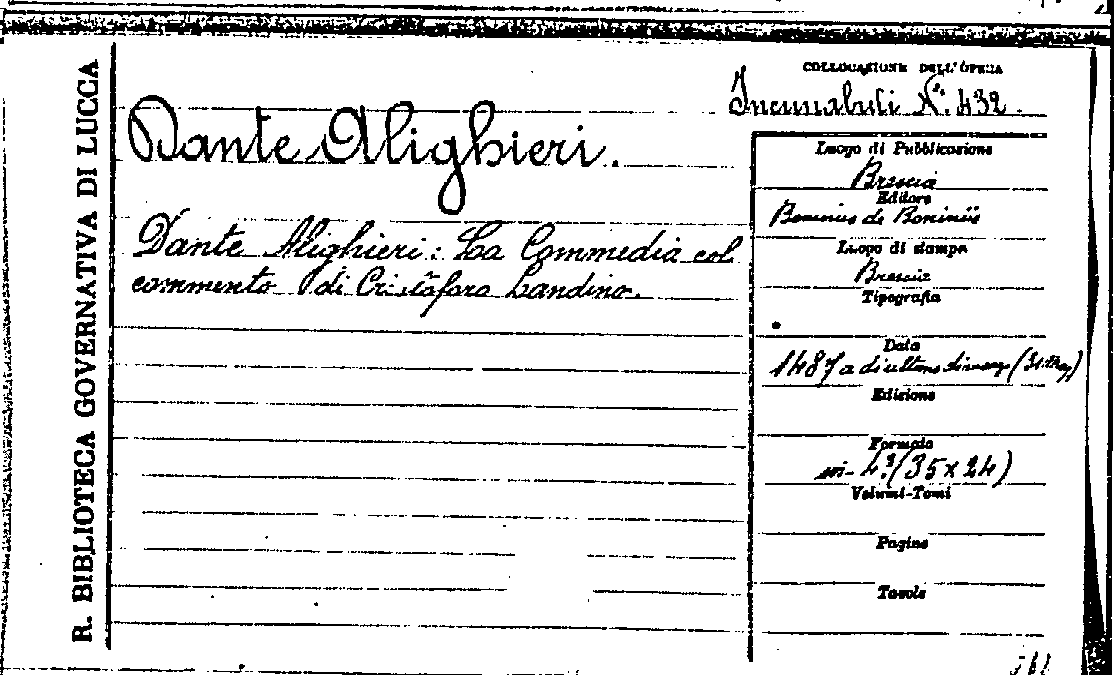 R. BIBLIOTECA GOVERNATIVA DI LUCCA
COLLOCAZIONE DELL'OPERA
Incunabuli N.° 432.
Dante Alighieri.
Dante Alighieri: La Commedia col
commento di Cristoforo Landino.
Luogo di Pubblicazione
Brescia
Editore
Boninus de Boniniis
Luogo di stampa
Brescia
Tipografia
Data
1487 a di ultimo di
Edizione
Formato
in-4.° (35 x 24)
Volumi-Tomi
Pagine
Tavole